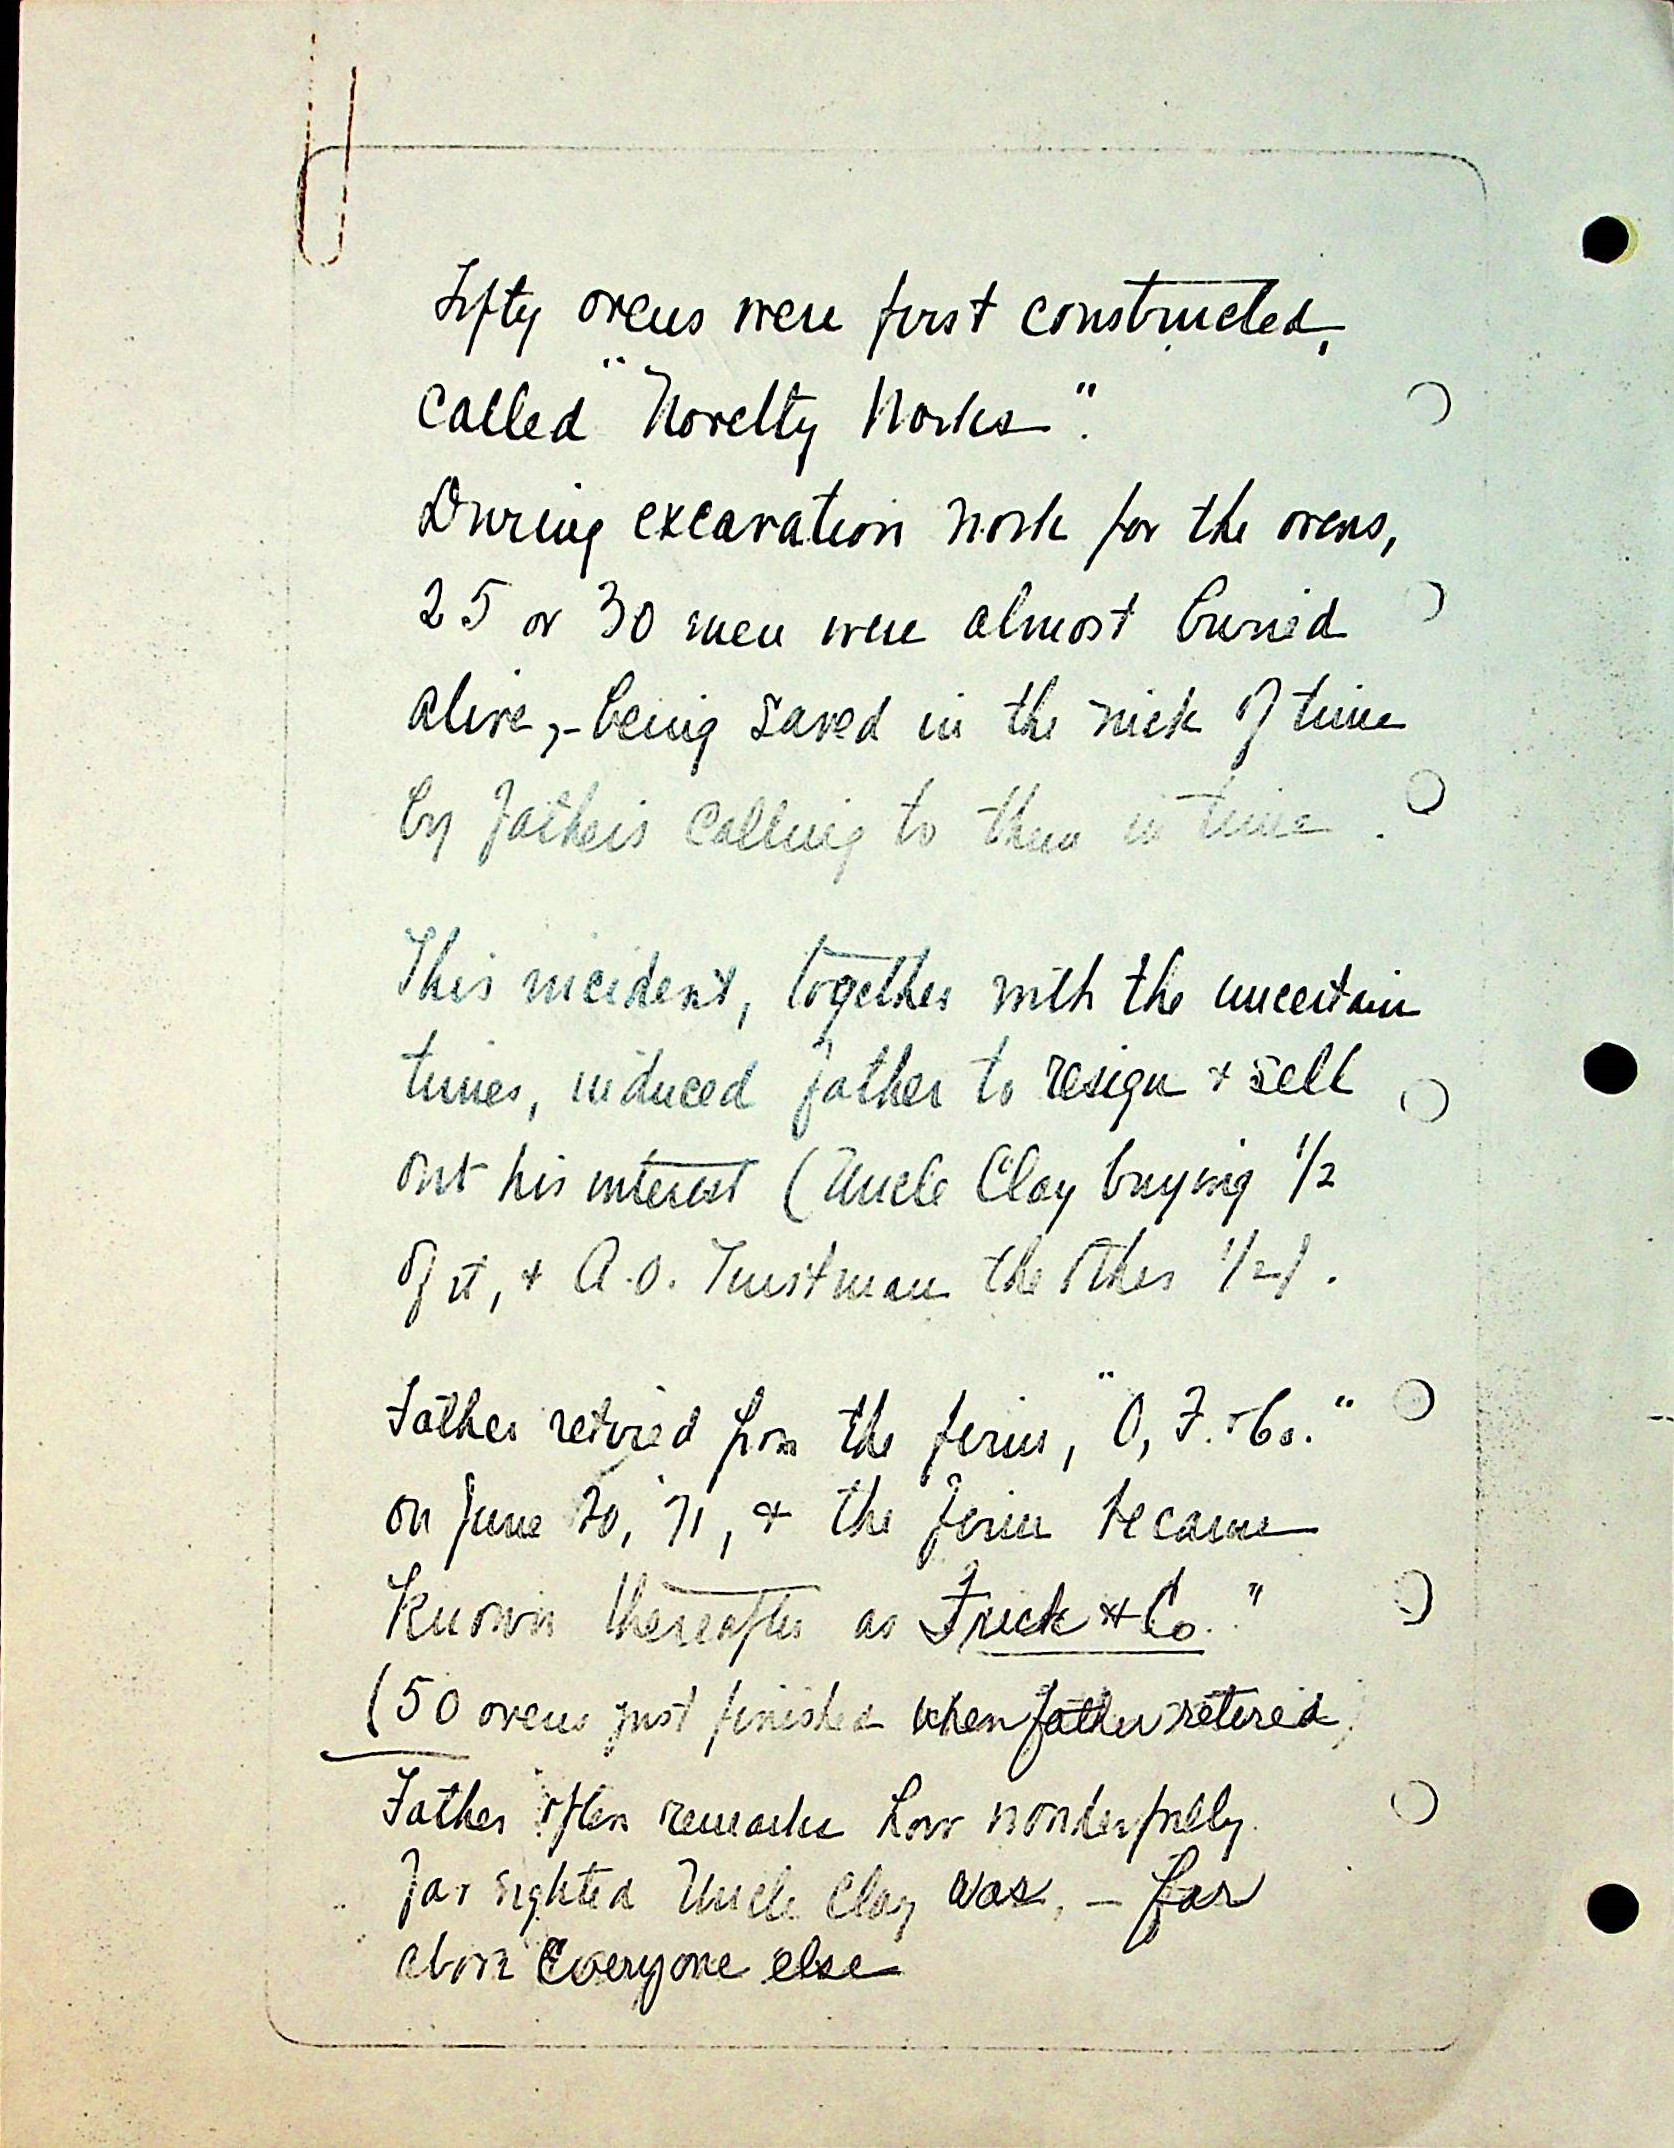 Fifty ovens were first constructed,
called "Novelty Works".
During excavation work for the ovens,
25 or 30 men were almost buried
alive, - being saved in the nick of time
by father's calling to them in time.
This incident, together with the uncertain
times, induced father to resign & sell
out his interest (Uncle Clay buying 1/2
of it, & A.O. Tinstman the other 1/2).
Father retired from the firm, "O, F. & Co."
on June 20, '71, & the firm became
known thereafter as Frick & Co."
(50 ovens just finished when father retired)
Father often remarks how wonderfully
far sighted Uncle Clay was, - far
above everyone else